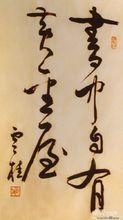 書中自有
黄金屋